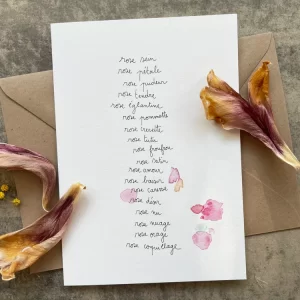 rose sein
rose pétale
rose pudeur
rose tendre
rose églantine
rose pommette
rose
rose tutu
rose froufrou
rose satin
rose amour
rose baiser
rose caresse
rose désir
rose nu
rose nuage
rose orage
rose coquillage